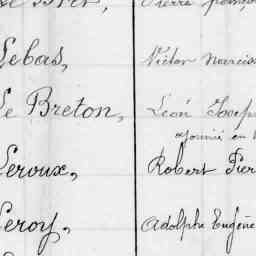 Lebas, Victor Narciss
Le Breton, Léon Josep
Leroux, Robert Pier
Leroy, Adolphe Eugène